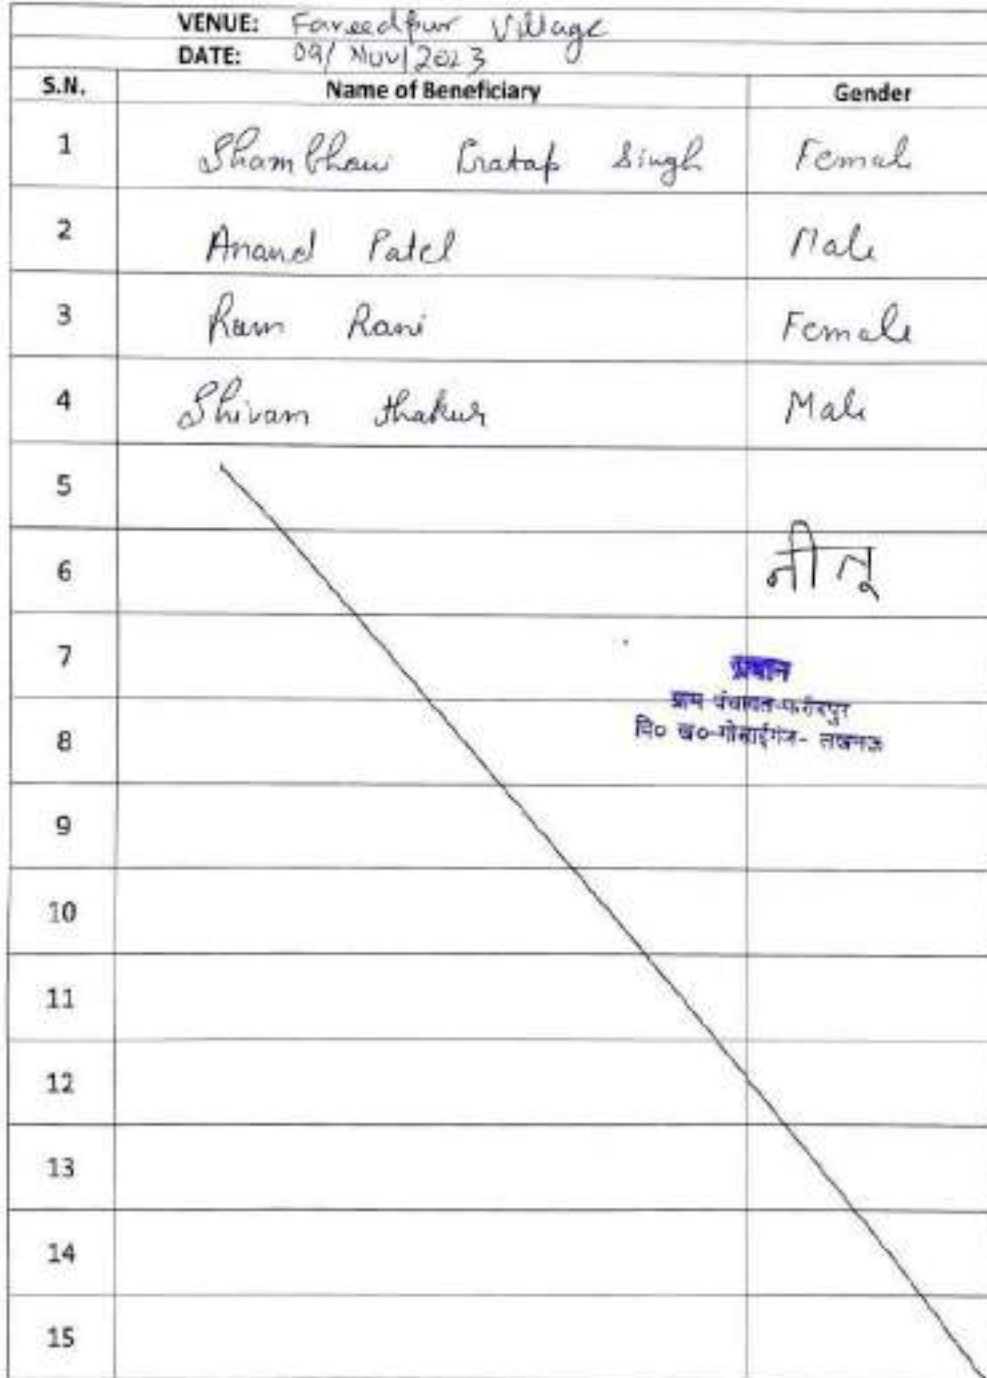 VENUE: Fareedpur Village
DATE: 09/Nov/2023
S.N. Name of Beneficiary Gender
1 Shambhavi Pratap Singh Femal
2 Anand Patel Male
3 Ram Rani Female
4 Shivam thakur Male
5
6 नीतू
7 प्रधान
ग्राम पंचायत-फरीदपुर
8 वि० ख०-गोसाईगंज- लखनऊ
9
10
11
12
13
14
15